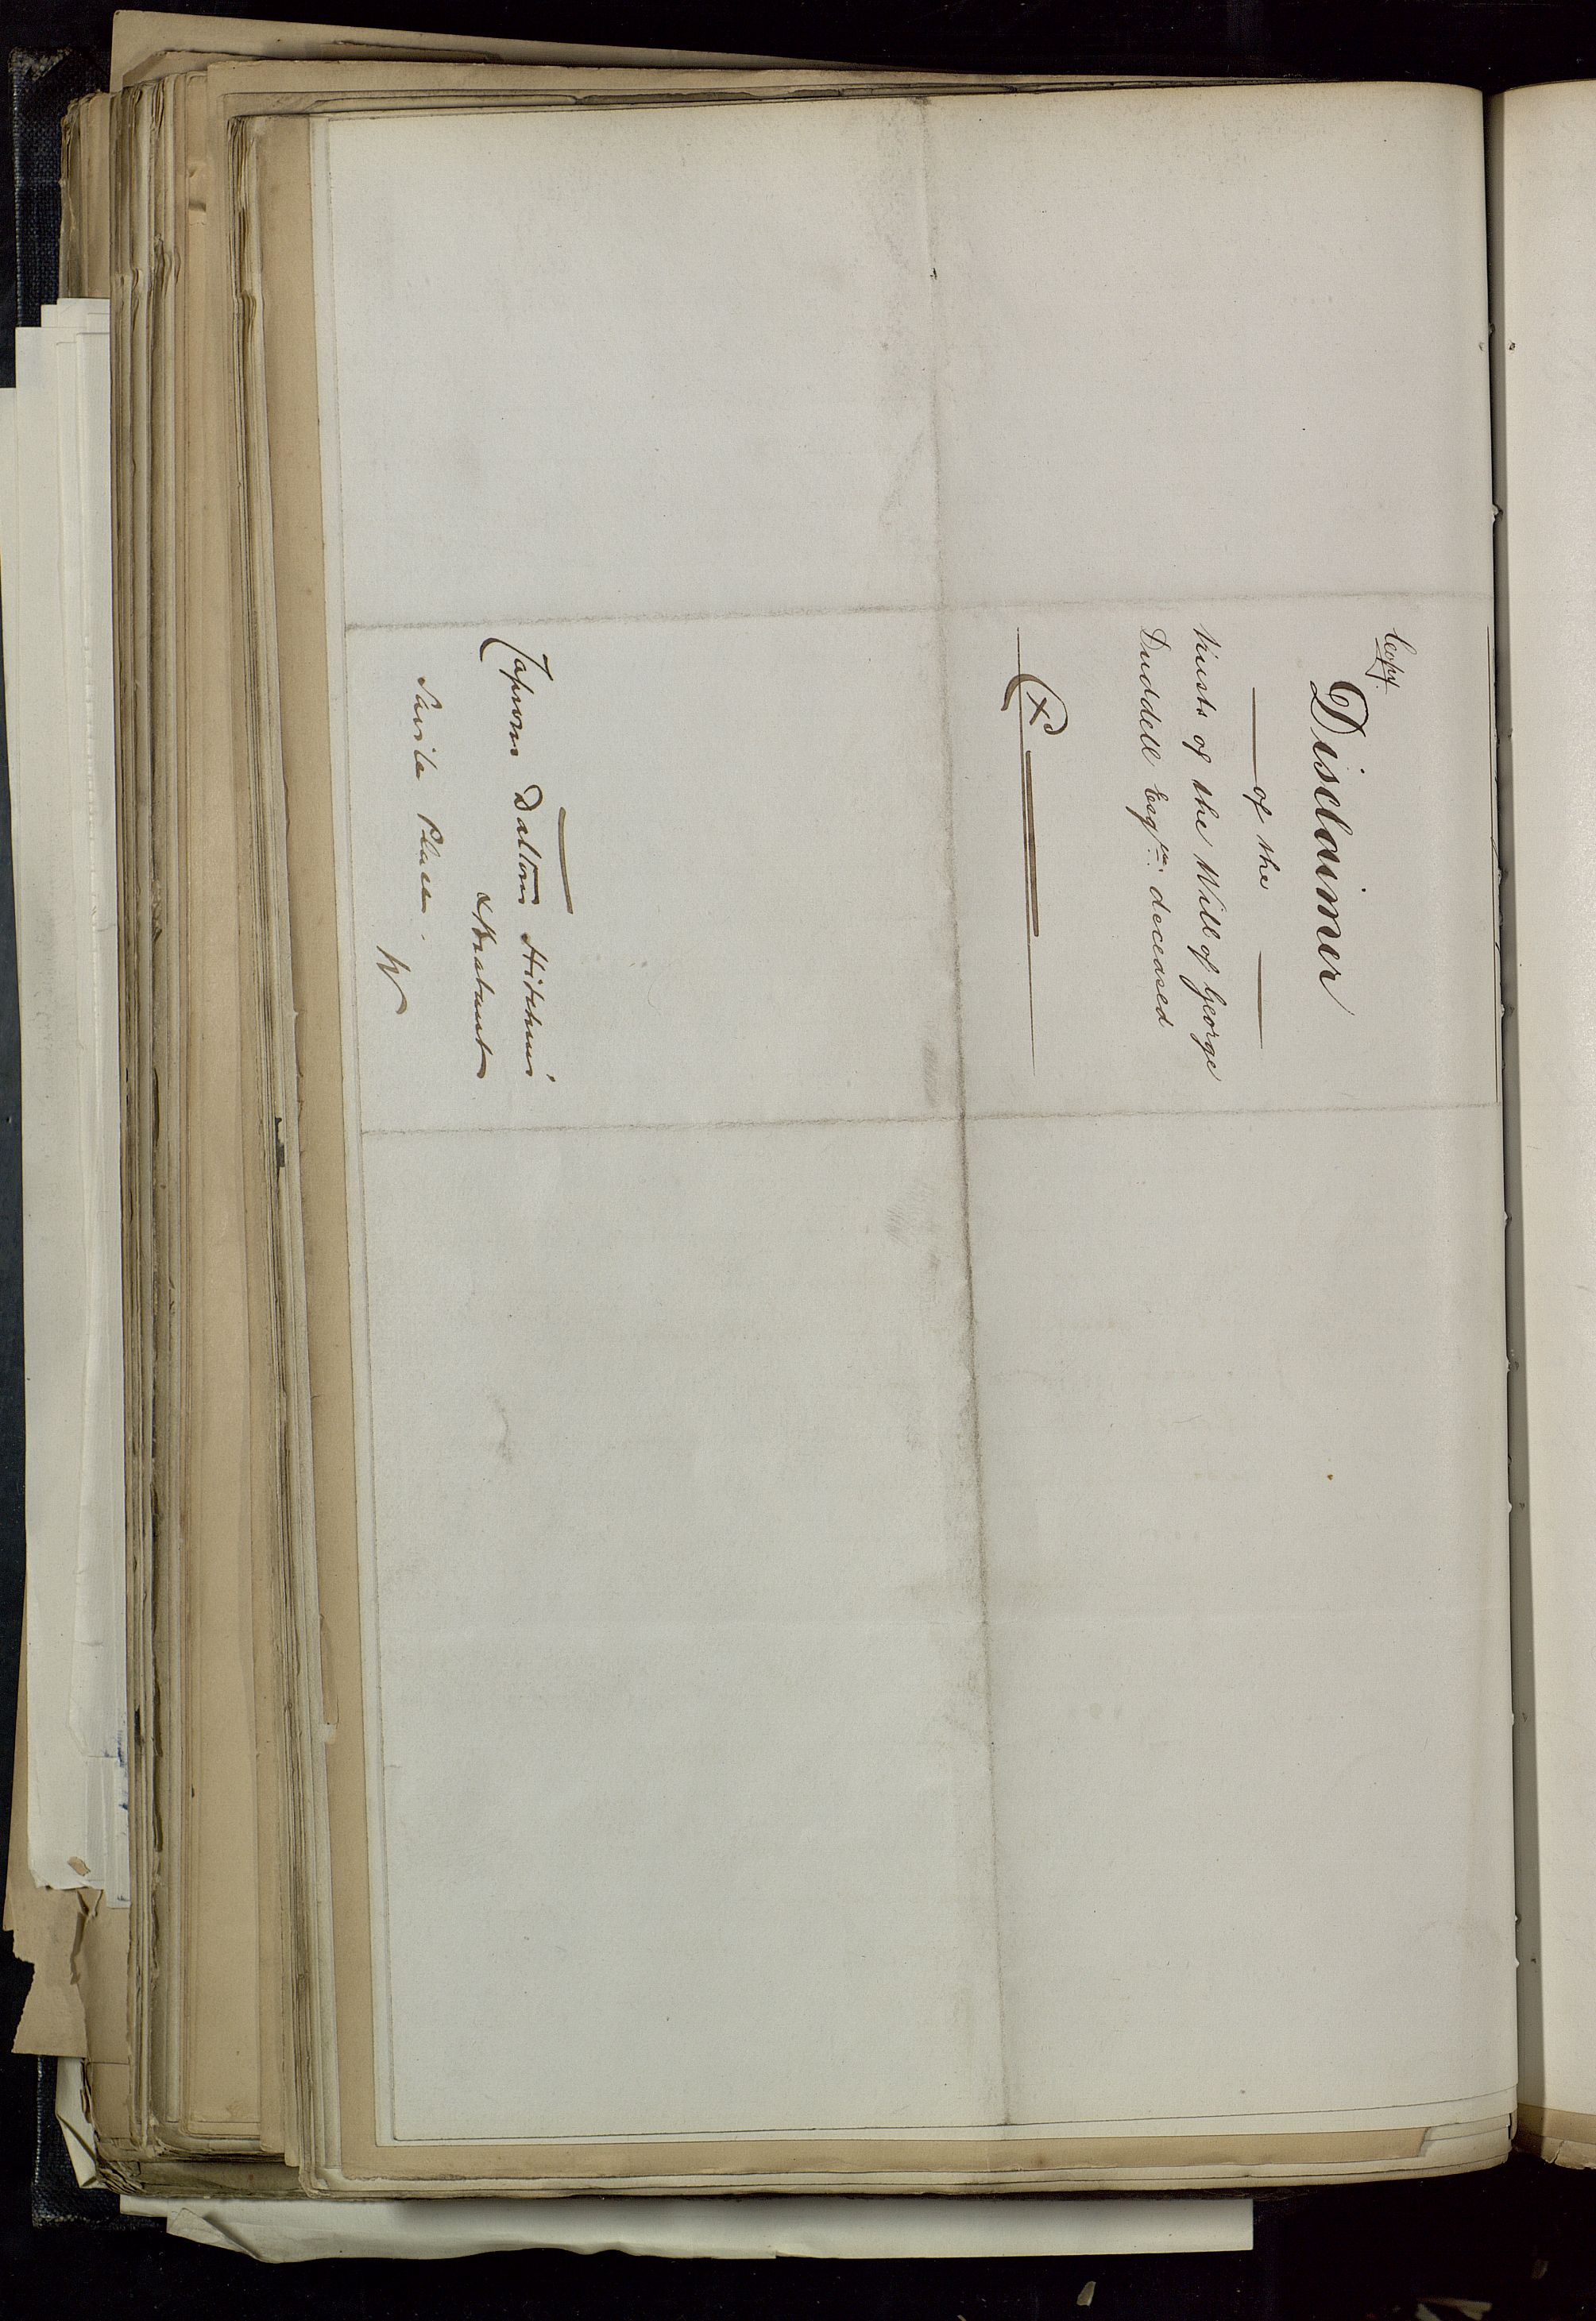 Copy.
Disclaimer
of the
trusts of the Will of George
Duddell Esqre: deceased
X
Capron Dalton Hitchins
& Brabant
Savile Place.
W